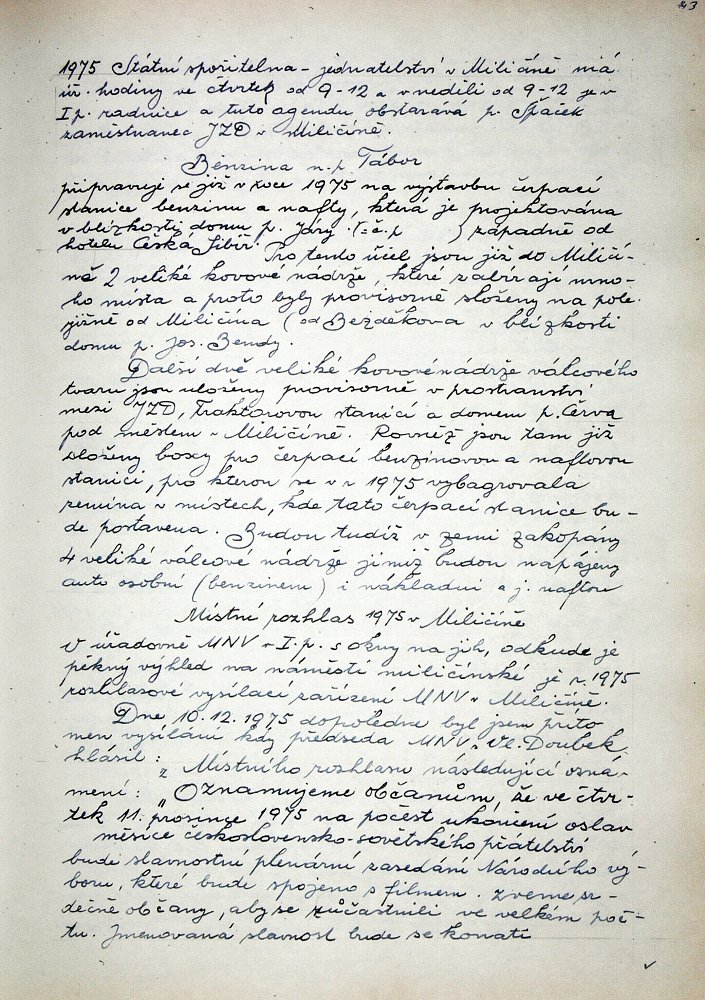 143
1975 Státní spořitelna – jednatelství v Miličíně má
úř. hodiny ve čtvrtek od 9-12 a v neděli od 9-12 je v
I p. radnice a tuto agendu obstarává p. Špaček
zaměstnanec JZD v Miličíně.
Benzina n.p. Tábor
připravuje se již v roce 1975 na výstavbu čerpací
stanice benzinu a nafty, která je projektována
v blízkosti domu p. Járy (č.p ) západně od
hotelu Česká Sibiř. Pro tento účel jsou již do Miličí-
ně 2 veliké kovové nádrže, které zabírají mno-
ho místa a proto byly provisorně složeny na pole
jižně od Miličína (od Bezděkova v blízkosti
domu p. Jos. Bendy.
Další dvě veliké kovové nádrže válcového
tvaru jsou uloženy provisorně v prostranství
mezi JZD, Traktorovou stanicí a domem p. Červa
pod městem v Miličíně. Rovněž jsou tam již
složeny boxy pro čerpací benzinovou a naftovou
stanici, pro kterou se v r 1975 vybagrovala
zemina v místech, kde tato čerpací stanice bu-
de postavena. Budou tudíž v zemi zakopány
4 veliké válcové nádrže jimiž budou napájeny
auto osobní (benzinem) i nákladní a j. naftou
Místní rozhlas 1975 v Miličíně
V úřadovně MNV v I. p. s okny na jih, odkude je
pěkný výhled na náměstí miličínské je r. 1975
rozhlasové vysílací zařízení MNV v Miličíně.
Dne 10.12.1975 dopoledne byl jsem příto
men vysílání kdy předseda MNV Vl. Doubek
hlásil:
„Místního rozhlasu následující ozná-
mení: „Oznamujeme občanům, že ve čtvr-
tek 11. prosince 1975 na počest ukončení oslav
měsíce československo-sovětského přátelství
bude slavnostní plenární zasedání Národního vý-
boru, které bude spojeno s filmem. Zveme sr-
dečně občany, aby se zúčastnili ve velkém poč-
tu. Jmenovaná slavnost bude se konati